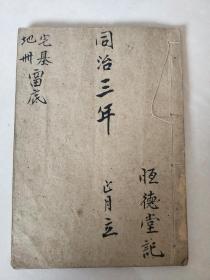 恒德堂記
同治三年
正月立
宅基
地冊
留底